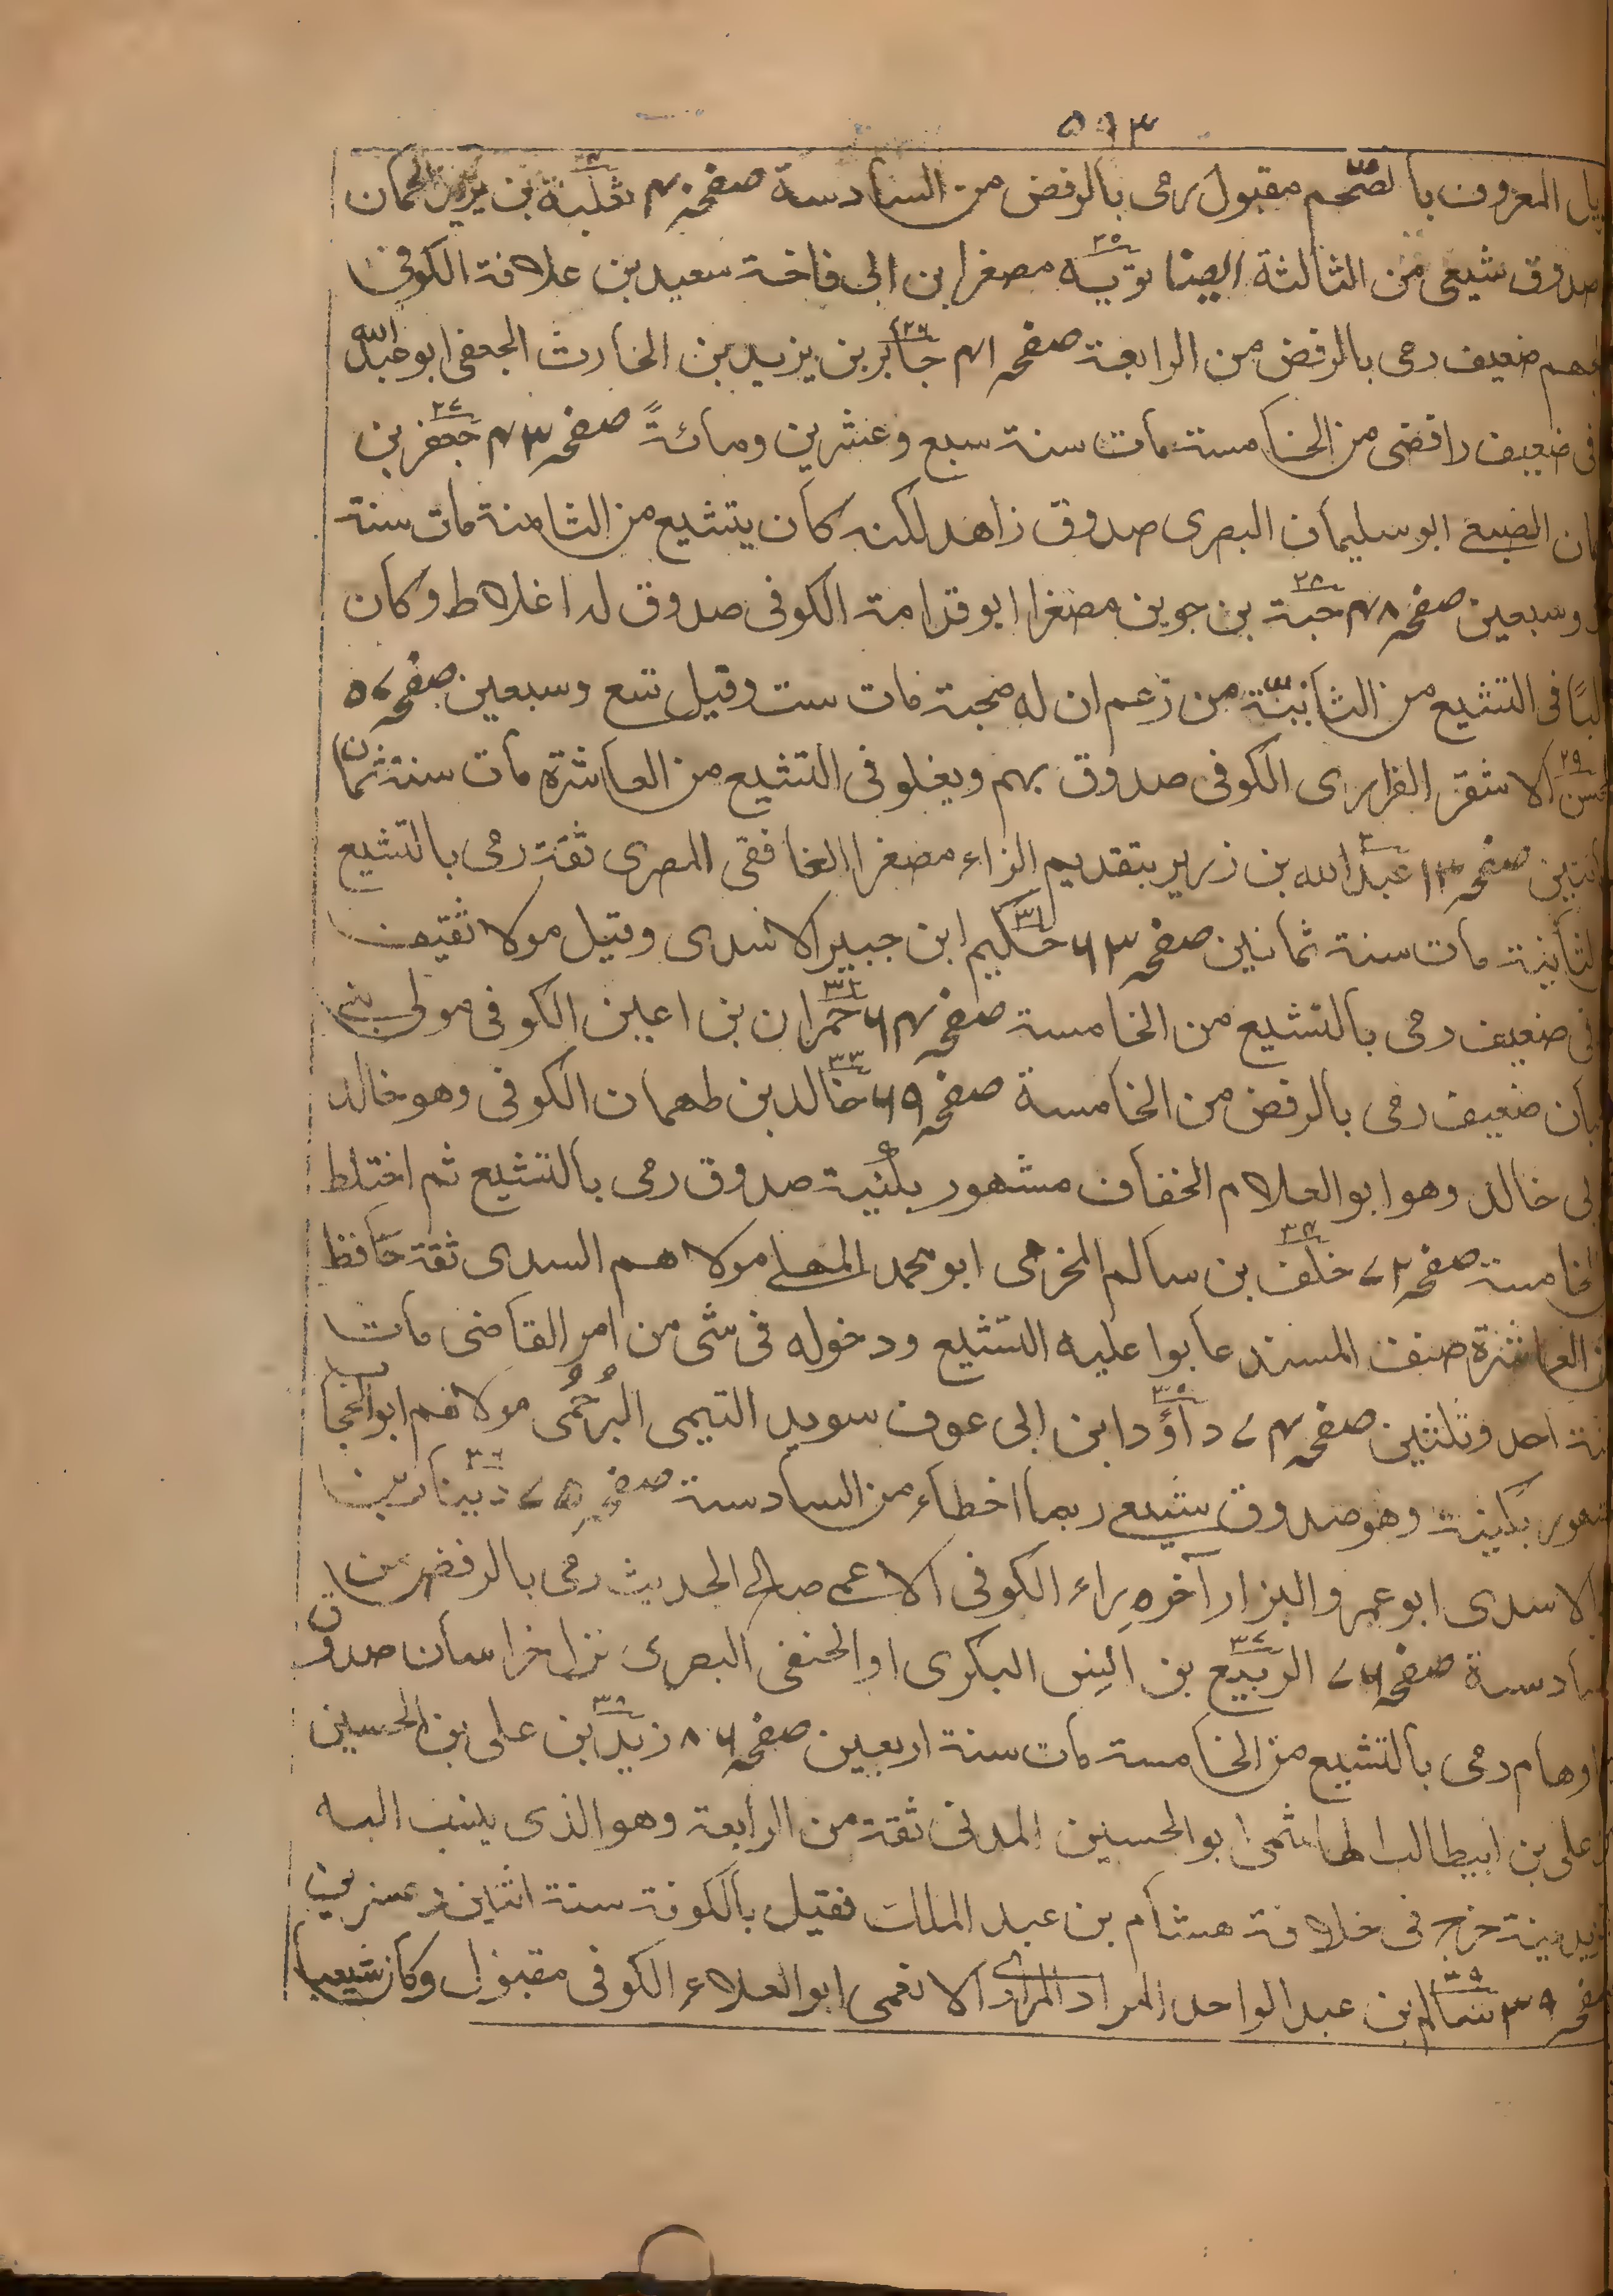 ٥٩٣
يل المعروف بالضخم مقبول رمى بالرفض من السادسة صفحه ۴۰ ۲۴ ثعلبة بن يزيد الحمان
صدوق شيعى من الثالثة ايضا ۲۵ ثويه مصغرا بن ابى فاخة سعيد بن علاقة الكوفى
جهم ضعيف رمى بالرفض من الرابعة صفحه ۴۱ ۲۶ جابر بن يزيد بن الحارث الجعفى ابو عبد الله
فى ضعيف رافضى من الخامسة مات سنة سبع وعشرين ومائةً صفحه ۴۳ ۲۷ جعفر بن
مان الضبعے ابو سليمان البصرى صدوق زاهد لكنه كان يتشيع من الثامنة مات سنة
وسبعين صفحه ۴۸ ۲۸ حبة بن جوين مصغرا ابو قدامة الكوفى صدوق له اغلاط وكان
لبًا فى التشيع من الثانية من زعم ان له صحبة مات ست وقيل تسع وسبعين صفحه ۵۷
۲۹ الحسن الاشقر الفزارى الكوفى صدوق يهم ويغلو فى التشيع من العاشرة مات سنة ثمان
ئتين صفحه ۱۳ ۳۰ عبد الله بن زرير بتقديم الزاء مصغرا الغافقى المصرى ثقة رمى بالتشيع
لثانية مات سنة ثمانين صفحه ۶۳ ۳۱ حكيم ابن جبير الاسدى وقيل مولا ثقيف
فى ضعيف رمى بالتشيع من الخامسة صفحه ۶۴ ۳۲ حمران بن اعين الكوفى مولى بنے
بان ضعيف رمى بالرفض من الخامسة صفحه ۶۹ ۳۳ خالد بن طهمان الكوفى وهو خالد
بى خالد وهو ابو العلام الخفاف مشهور بكنية صدوق رمى بالتشيع ثم اختلط
الخامسة صفحه ۷۲ ۳۴ خلف بن سالم المخرمى ابو محمد المهلے مولاهم السدى ثقة حافظ
من العاشرة صنف المسند عابوا عليه التشيع ودخوله فى شى من امر القاضى مات
نة احد وثلثين صفحه ۷۴ ۳۵ داؤد ابن ابى عوف سويد التيمى البُرجُمى مولاهم ابو الحجا
شهور بكنية وهو صدوق شيعے ربما اخطاء من السادسة صفحه ۷۵ ۳۶ دينار بن
الاسدى ابو عمر والبزار آخره راء الكوفى الاعمے صالح الحديث رمى بالرفض من
سادسة صفحه ۷۶ ۳۷ الربيع بن انس البكرى او الحنفى البصرى نزل خراسان صدوق
اوهام رمى بالتشيع من الخامسة مات سنة اربعين صفحه ۸۶ ۳۸ زيد بن على بن الحسين
على بن ابيطالب الهاشمى ابو الحسين المدنى ثقة من الرابعة وهو الذى ينسب اليه
زيدية خرج فى خلافة هشام بن عبد الملك فقتل بالكوفة سنة اثنين وعشرين
صفحه ۳۹ ۳۹ سالم بن عبد الواحد المراد المرادى الانعمى ابو العلاء الكوفى مقبول وكان شيعيا